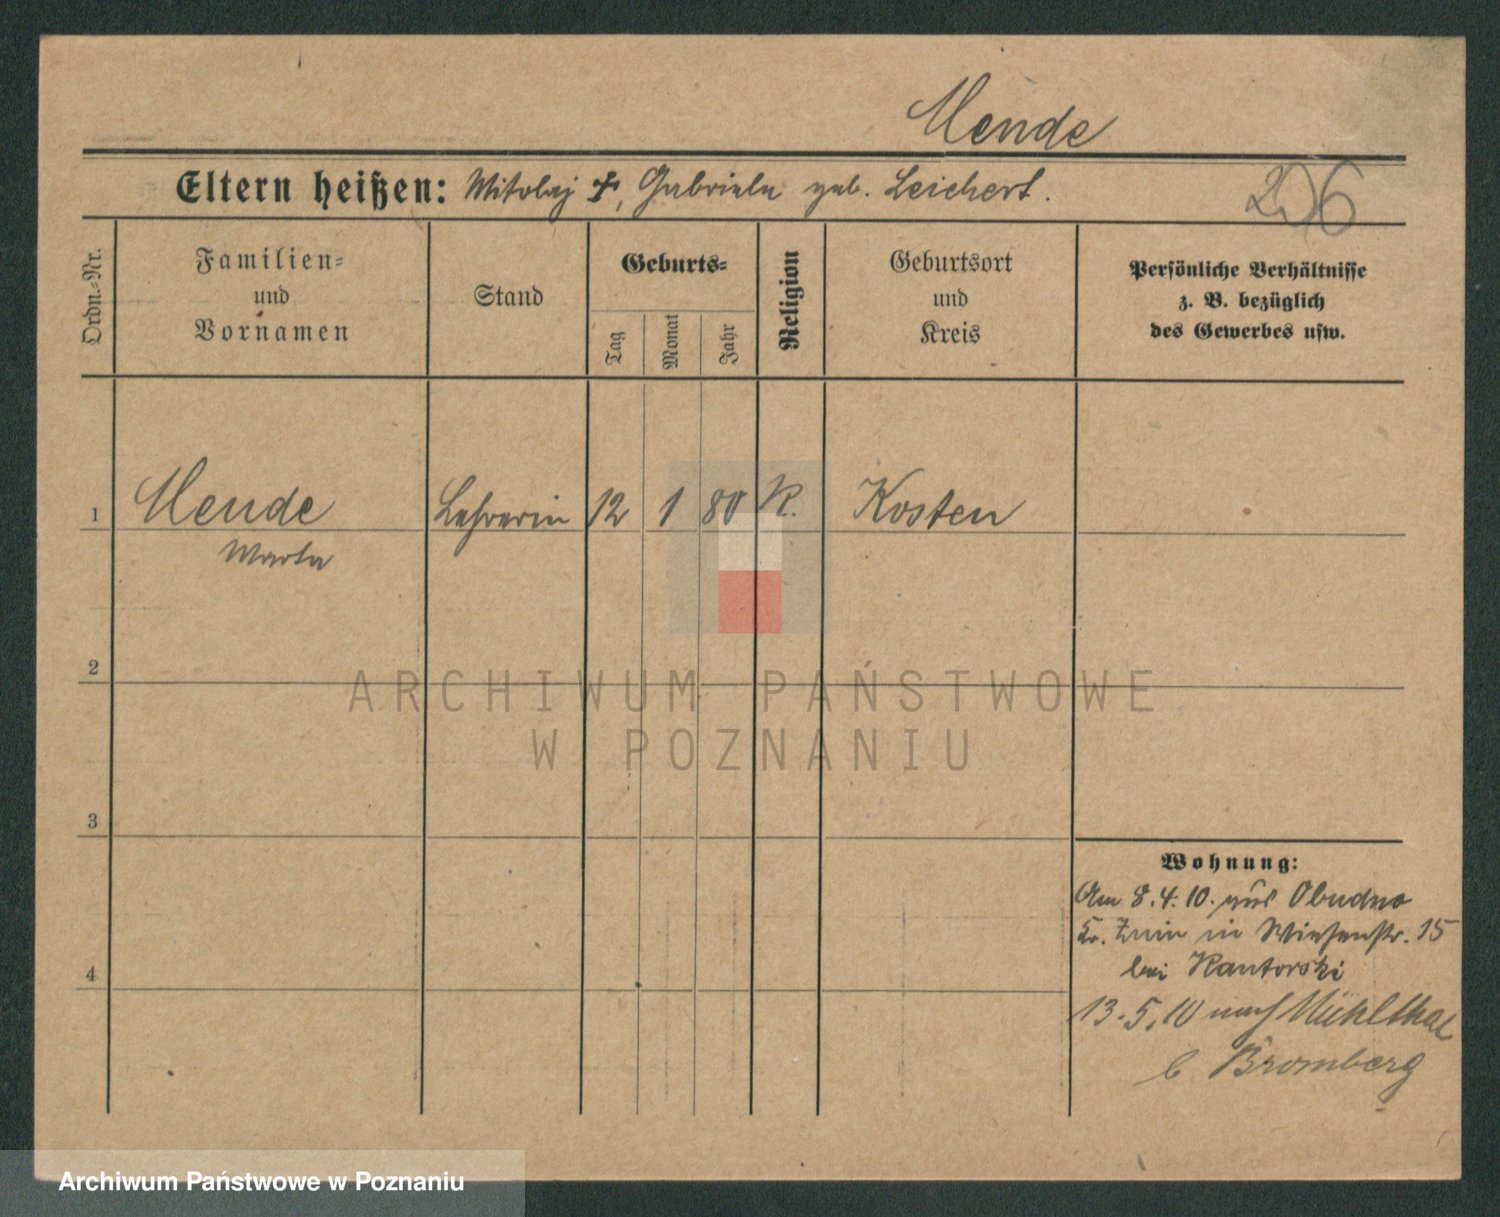 Mende
Eltern heißen: Mikolaj †, Gabriela geb. Leichert.
Ordn.-Nr.
Familien-
und
Vornamen
Stand
Geburts-
Tag
Monat
Jahr
Religion
Geburtsort
und
Kreis
Persönliche Verhältnisse
z. B. bezüglich
des Gewerbes usw.
1 Mende Lehrerin 12 1 80 K. Kosten
Marta
2
3
4
Wohnung:
Am 8.4.10. aus Obudno
Kr. Znin in Wiesenstr. 15
bei Kantorski
13.5.10 nach Mühlthal
b Bromberg
ARCHIWUM PAŃSTWOWE
W POZNANIU
Archiwum Państwowe w Poznaniu